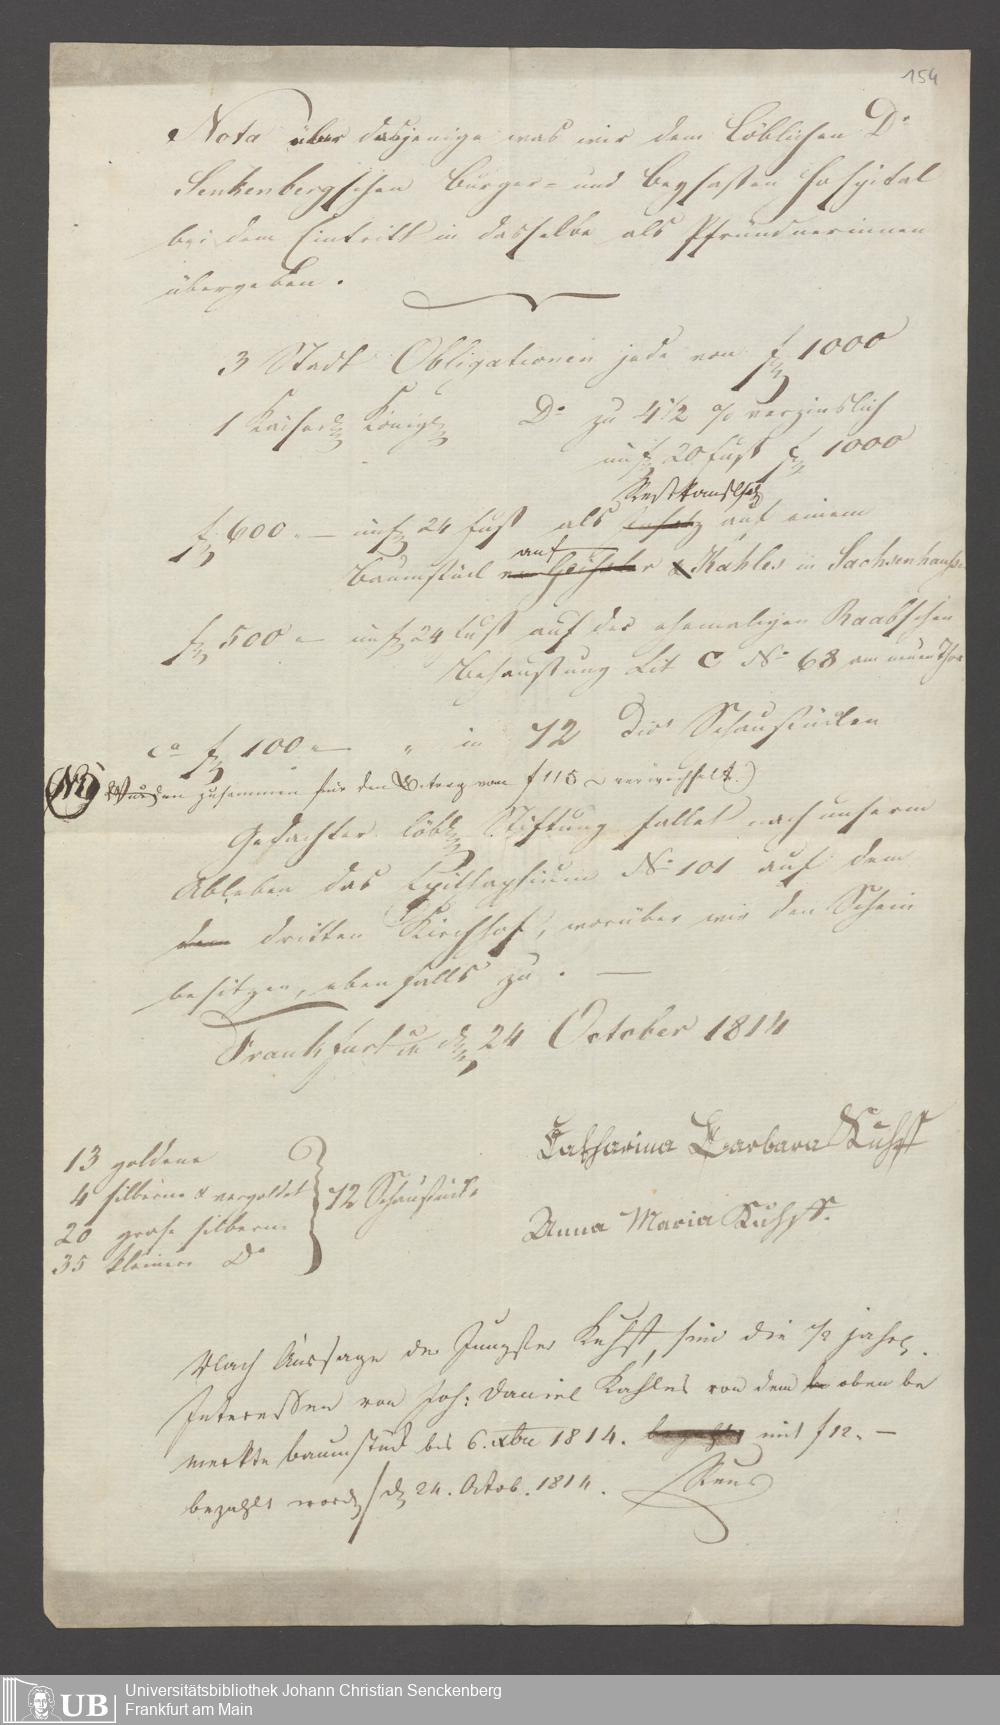 154
Nota über dasjenige was wir dem Löblichen Dr
Senkenbergischen Bürger- und Beysassen Hospital
bei dem Eintritt in dasselbe als Pfründnerinnen
übergeben.
3 Stadt Obligationen jede von f 1000
1 Kaiserl. Königl. Do zu 4 1/2 % verzinslich
im f 20 fuß f 1000
Restkaufschl.
f 600 — im f 24 fuß als auf einem
auf
Baumstück Kahles in Sachsenhausen
f 500 — im f 24 fuß auf der ehemaligen Raabschen
Behausung Lit C No 68 am neuen Thor
ca f 100 — " in 72 div. Schaustücken
NB wurden zusammen für den Betrag von f 115 verwechselt.)
Gedachter löbl. Stiftung fallet nach unserm
Ableben das Epithaphium No 101 auf dem
dem dritten Kirchhof, worüber wir den Schein
besitzen, ebenfalls zu. —
Frankfurt den 24 October 1814
Catharina Barbara Kuhst
Anna Maria Kuhst.
13 goldene
4 silberne & vergoldet
20 grose silberne
35 kleinere Do
72 Schaustücke
Nach Aussage der Jungfer Kuhst, sind die 1/2 jahrl.
Interessen von Joh: Daniel Kahles von dem oben be
merkte Baumstück bis 6. xbr 1814. mit f 12. —
bezahlt worden / d 24. Octob. 1814.
Universitätsbibliothek Johann Christian Senckenberg
UB Frankfurt am Main